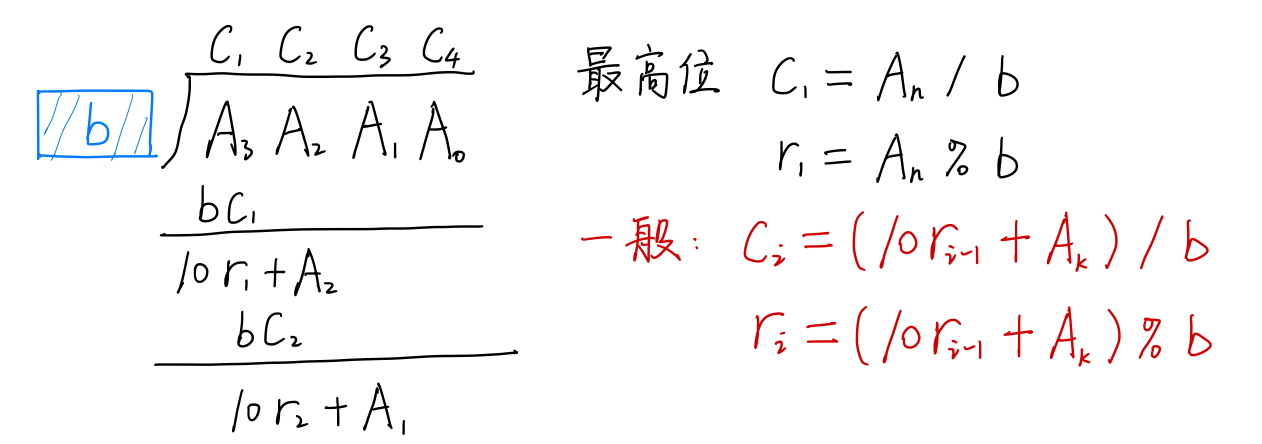 C₁ C₂ C₃ C₄
b A₃ A₂ A₁ A₀
bC₁
10r₁+A₂
bC₂
10r₂+A₁
最高位 C₁ = Aₙ / b
r₁ = Aₙ % b
一般: Cᵢ = (10rᵢ₋₁ + Aₖ) / b
rᵢ = (10rᵢ₋₁ + Aₖ) % b